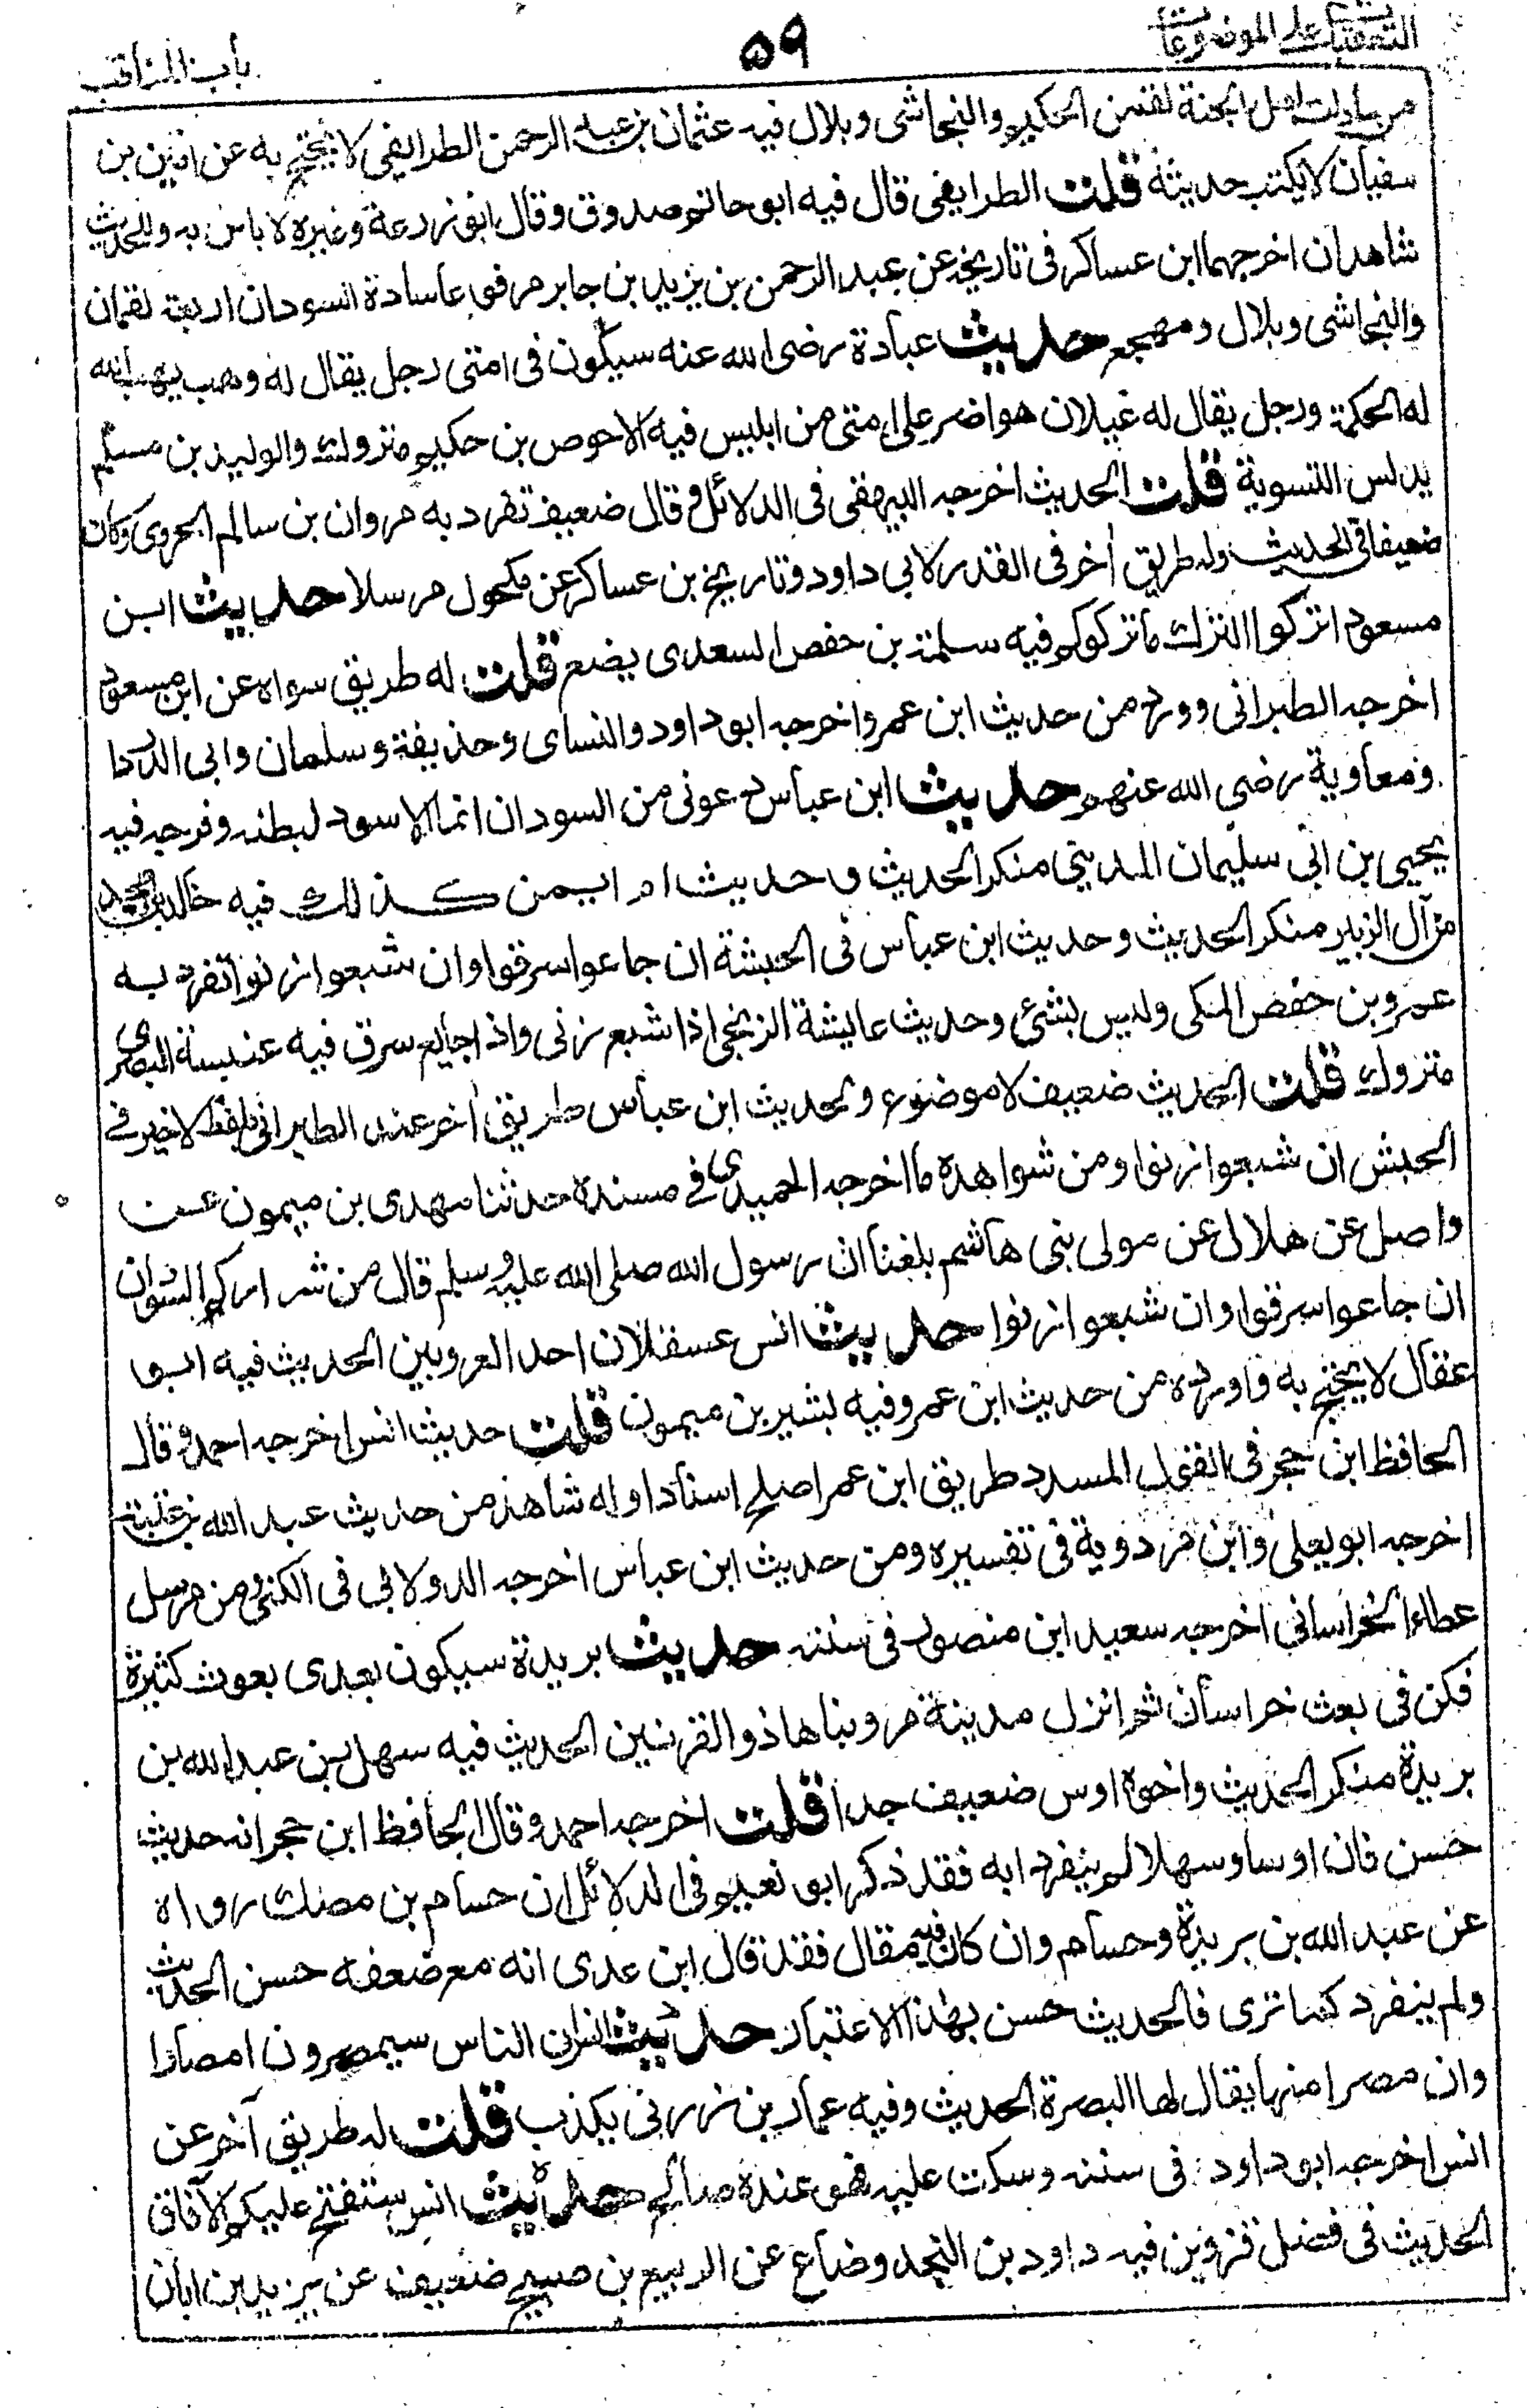 التعقبات على الموضوعات
٥٩
باب المناقب
من سادات اهل الجنة لقمن الحكيم والنجاشى وبلال فيه عثمان بن عبد الرحمن الطرايفى لا يحتج به عن ابين بن
سفيان لا يكتب حديثه قلت الطرايفى قال فيه ابو حاتم صدوق وقال ابو زرعة وغيره لا باس به وللحديث
شاهدان اخرجهما ابن عساكر فى تاريخه عن عبد الرحمن بن يزيد بن جابر مرفوعا سادة السودان اربعة لقمان
والنجاشى وبلال ومهجع حديث عبادة رضى الله عنه سيكون فى امتى رجل يقال له وهب يهب الله
له الحكمة ورجل يقال له غيلان هو اضر على امتى من ابليس فيه الاحوص بن حكيم متروك والوليد بن مسلم
يدلس التسوية قلت الحديث اخرجه البيهقى فى الدلائل وقال ضعيف تفرد به مروان بن سالم الجزرى وكان
ضعيفا فى الحديث وله طريق اخر فى القدر لابى داود وتاريخ بن عساكر عن مكحول مرسلا حديث ابن
مسعود اتركوا الترك ما تركوكم فيه سلمة بن حفص السعدى يضع قلت له طريق سواه عن ابن مسعود
اخرجه الطبرانى وورد من حديث ابن عمرو اخرجه ابو داود والنساى وحذيفة وسلمان وابى الدردا
ومعاوية رضى الله عنهم حديث ابن عباس دعونى من السودان انما الاسود لبطنه وفرجه فيه
يحيى بن ابى سليمان المدينى منكر الحديث وحديث ام ايمن كذلك فيه خالد بن محمد
من آل الزبير منكر الحديث وحديث ابن عباس فى الحبشة ان جاعوا سرقوا وان شبعوا زنوا تفرد به
عمرو بن حفص المكى وليس بشئ وحديث عايشة الزنجى اذا شبع زنى واذا جايع سرق فيه عنبسة البصرى
متروك قلت الحديث ضعيف لا موضوع ولحديث ابن عباس طريق اخر عند الطبرانى بلفظ لا خير فى
الحبش ان شبعوا زنوا ومن شواهده ما اخرجه الحميدى فى مسنده حدثنا مهدى بن ميمون عن
واصل عن هلال عن مولى بنى هاشم بلغنا ان رسول الله صلى الله عليه وسلم قال من شراركم السودان
ان جاعوا سرقوا وان شبعوا زنوا حديث انس عسقلان احد العروسين الحديث فيه ابو
عقال لا يحتج به واورده من حديث ابن عمر وفيه بشير بن ميمون قلت حديث انس اخرجه احمد وقال
الحافظ ابن حجر فى القول المسدد طريق ابن عمر اصلح اسنادا وله شاهد من حديث عبد الله بن
اخرجه ابو يعلى وابن مردوية فى تفسيره ومن حديث ابن عباس اخرجه الدولابى فى الكنى ومن مرسل
عطاء الخراسانى اخرجه سعيد ابن منصور فى سننه حديث بريدة سيكون بعدى بعوث كثيرة
فكن فى بعث خراسان ثم انزل مدينة مرو بناها ذو القرنين الحديث فيه سهل بن عبد الله بن
بريدة منكر الحديث واخوه اوس ضعيف جدا قلت اخرجه احمد وقال الحافظ ابن حجر انه حديث
حسن فان اوسا وسهلا لم ينفردا به فقد ذكر ابو نعيم فى الدلائل ان حسام بن مصك رواه
عن عبد الله بن بريدة وحسام وان كان فيه مقال فقد قال ابن عدى انه مع ضعفه حسن الحديث
ولم ينفرد كما ترى فالحديث حسن بهذا الاعتبار حديث انس ان الناس سيمصرون امصارا
وان مصرا منها يقال لها البصرة الحديث وفيه عمار بن زربى يكذب قلت له طريق آخر عن
انس اخرجه ابو داود فى سننه وسكت عليه فهو عنده صالح حديث انس ستفتح عليكم الآفاق
الحديث فى فضل قزوين فيه داود بن المحبر وضاع عن الربيع بن صبيح ضعيف عن يزيد بن ابان